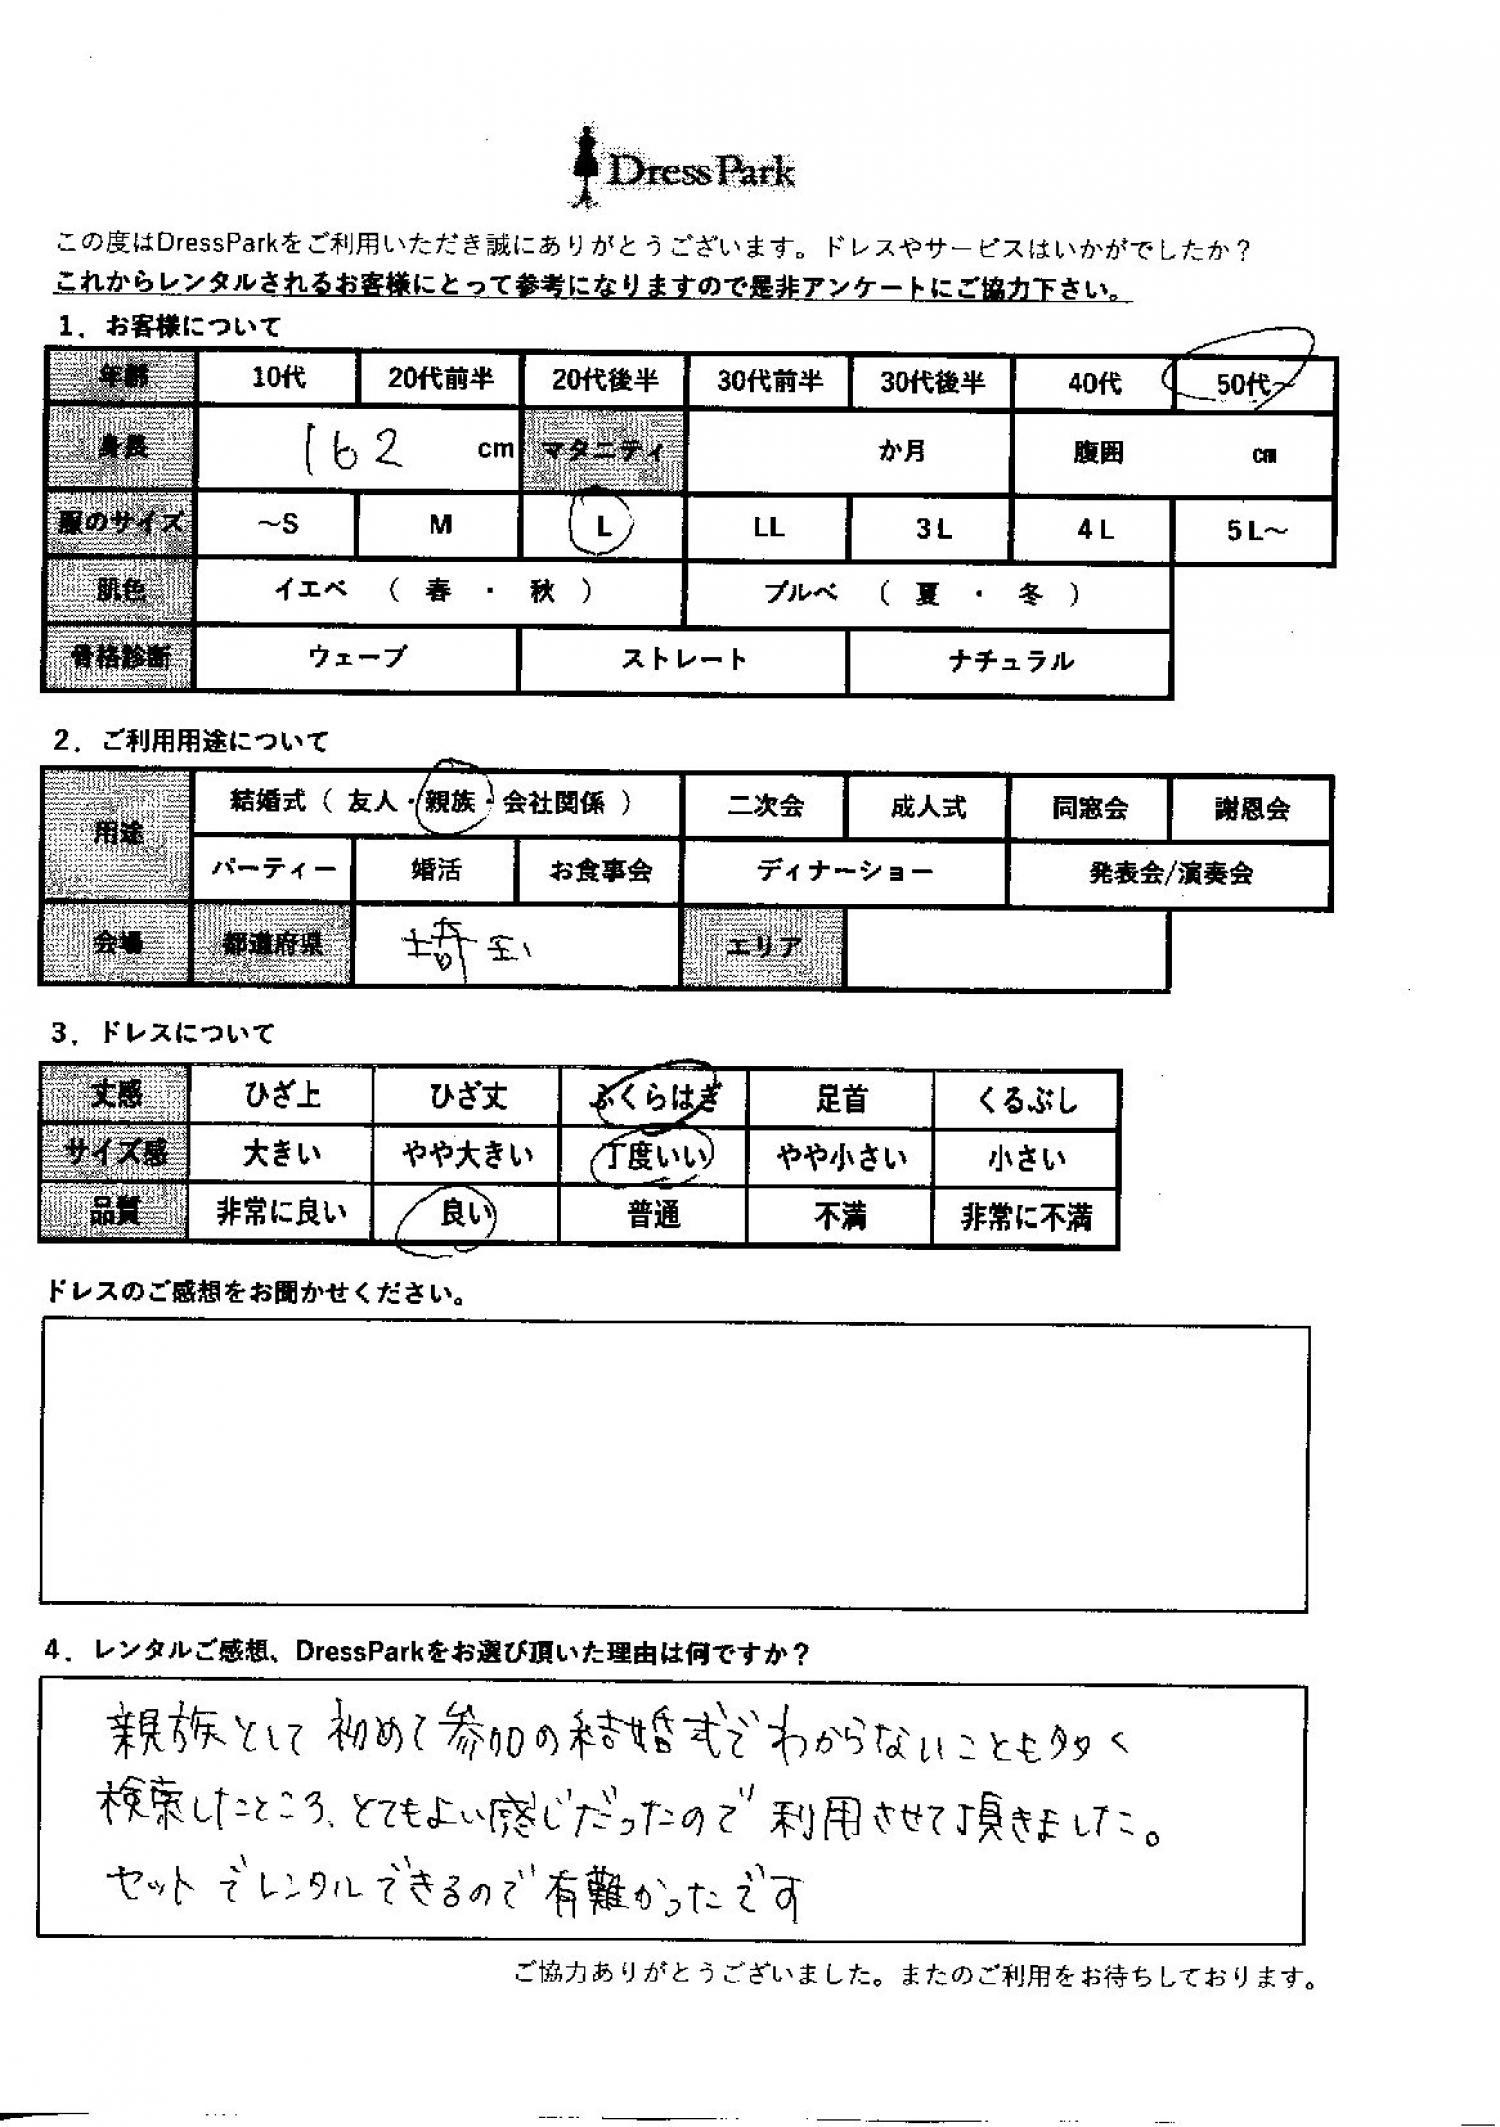 DressPark
この度はDressParkをご利用いただき誠にありがとうございます。ドレスやサービスはいかがでしたか？
これからレンタルされるお客様にとって参考になりますので是非アンケートにご協力下さい。
1．お客様について
年齢 10代 20代前半 20代後半 30代前半 30代後半 40代 50代〜
身長 162 cm マタニティ か月 腹囲 cm
服のサイズ 〜S M L LL 3L 4L 5L〜
肌色 イエベ （ 春 ・ 秋 ） ブルベ （ 夏 ・ 冬 ）
骨格診断 ウェーブ ストレート ナチュラル
2．ご利用用途について
用途 結婚式（ 友人・親族・会社関係 ） 二次会 成人式 同窓会 謝恩会
パーティー 婚活 お食事会 ディナーショー 発表会/演奏会
会場 都道府県 埼玉 エリア
3．ドレスについて
丈感 ひざ上 ひざ丈 ふくらはぎ 足首 くるぶし
サイズ感 大きい やや大きい 丁度いい やや小さい 小さい
品質 非常に良い 良い 普通 不満 非常に不満
ドレスのご感想をお聞かせください。
4．レンタルご感想、DressParkをお選び頂いた理由は何ですか？
親族として初めて参加の結婚式でわからないことも多く
検索したところ、とてもよい感じだったので利用させて頂きました。
セットでレンタルできるので有難かったです
ご協力ありがとうございました。またのご利用をお待ちしております。